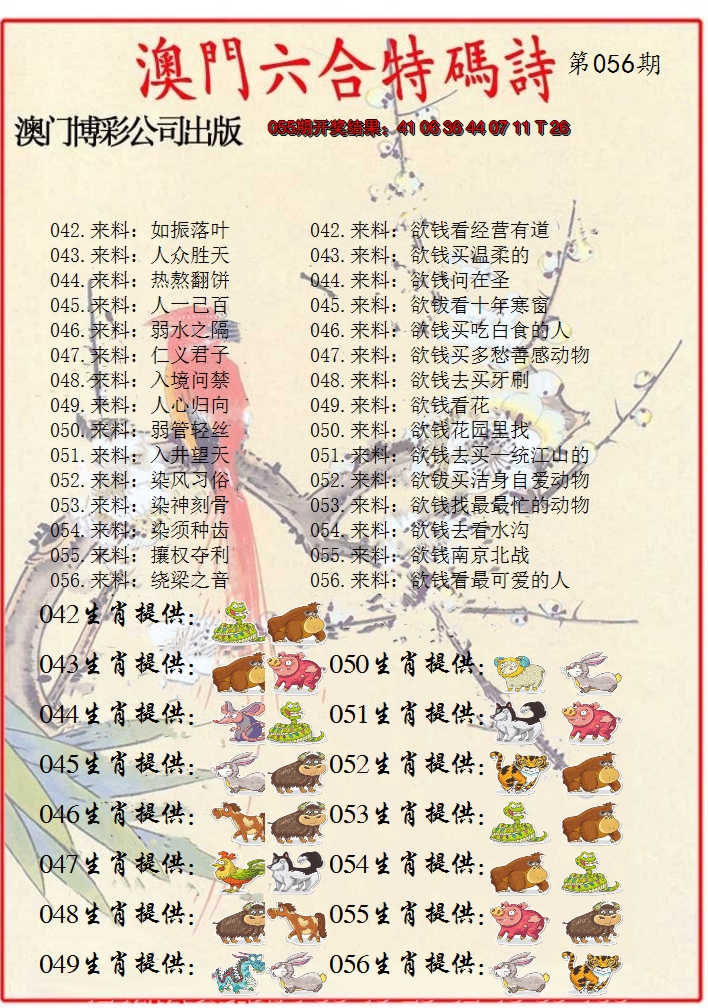 澳門六合特碼詩 第056期
澳门博彩公司出版 055期开奖结果：41 06 36 44 07 11 T 26
042.来料：如振落叶 042.来料：欲钱看经营有道
043.来料：人众胜天 043.来料：欲钱买温柔的
044.来料：热熬翻饼 044.来料：欲钱问在圣
045.来料：人一己百 045.来料：欲钹看十年寒窗
046.来料：弱水之隔 046.来料：欲钱买吃白食的人
047.来料：仁义君子 047.来料：欲钱买多愁善感动物
048.来料：入境问禁 048.来料：欲钱去买牙刷
049.来料：人心归向 049.来料：欲钱看花
050.来料：弱管轻丝 050.来料：欲钱花园里找
051.来料：入井望天 051.来料：欲钱去买一统江山的
052.来料：染风习俗 052.来料：欲钹买洁身自爱动物
053.来料：染神刻骨 053.来料：欲钱找最最忙的动物
054.来料：染须种齿 054.来料：欲钱去看水沟
055.来料：攘权夺利 055.来料：欲钱南京北战
056.来料：绕梁之音 056.来料：欲钱看最可爱的人
042生肖提供：
043生肖提供： 050生肖提供：
044生肖提供： 051生肖提供：
045生肖提供： 052生肖提供：
046生肖提供： 053生肖提供：
047生肖提供： 054生肖提供：
048生肖提供： 055生肖提供：
049生肖提供： 056生肖提供：